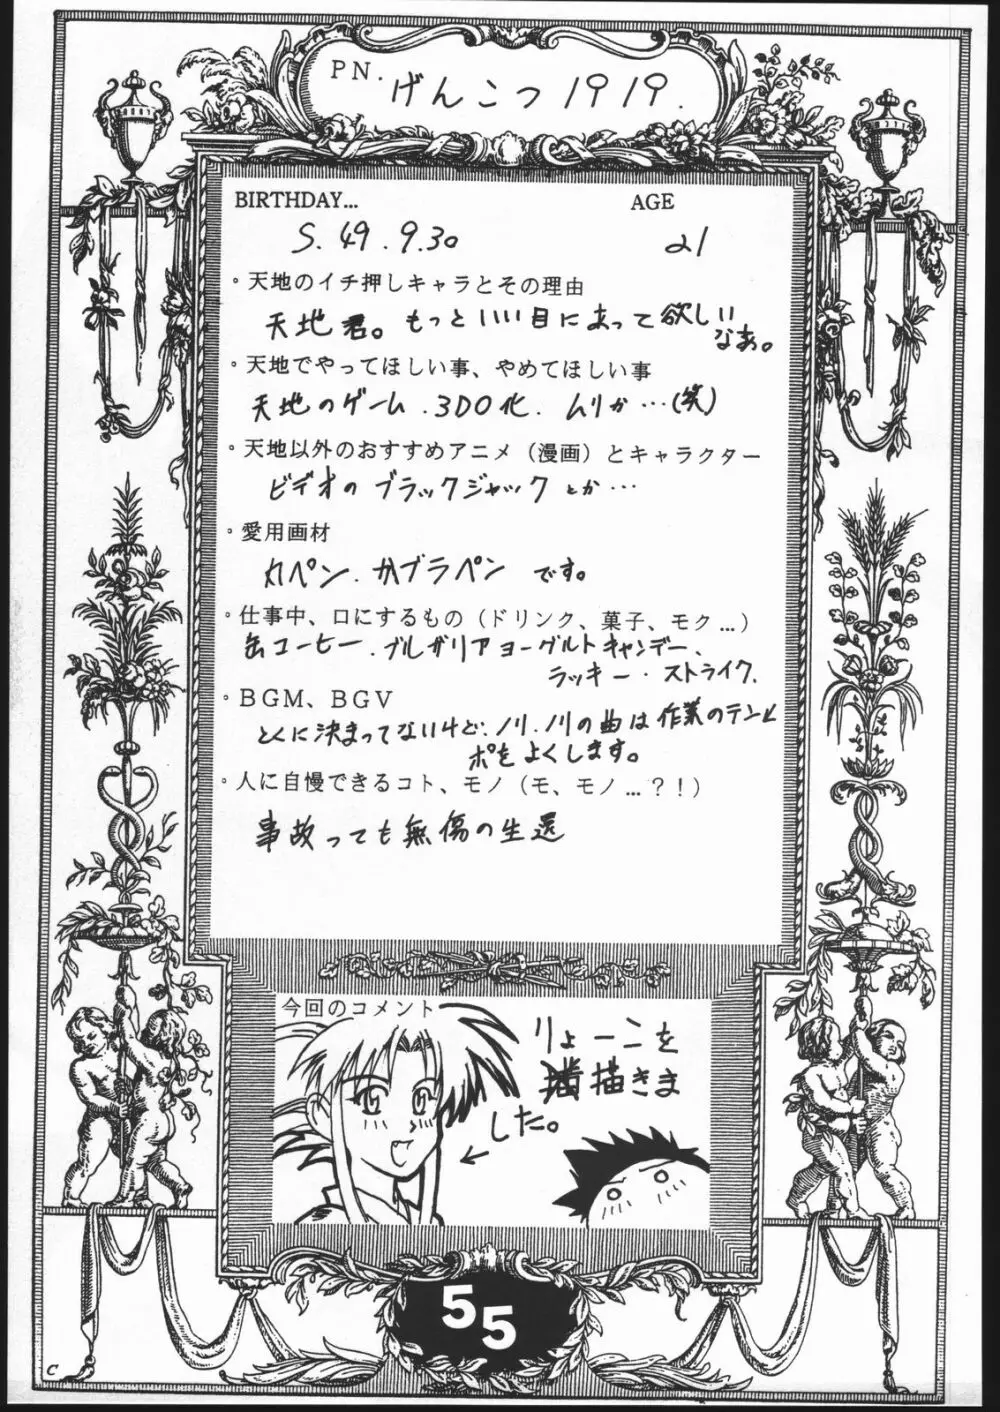 PN.
げんこつ1919.
BIRTHDAY... AGE
S.49.9.30 21
・天地のイチ押しキャラとその理由
天地君。もっといい目にあって欲しい
なぁ。
・天地でやってほしい事、やめてほしい事
天地のゲーム.3DO化.ムリか…(笑)
・天地以外のおすすめアニメ（漫画）とキャラクター
ビデオのブラックジャックとか…
・愛用画材
丸ペン.カブラペンです。
・仕事中、口にするもの（ドリンク、菓子、モク…）
缶コーヒー.ブルガリアヨーグルトキャンデー、
ラッキー・ストライク.
・BGM、BGV
とくに決まってないけど、ノリ.ノリの曲は作業のテン
ポをよくします。
・人に自慢できるコト、モノ（モ、モノ…？！）
事故っても無傷の生還
今回のコメント
りょーこを
描きま
した。
55
C